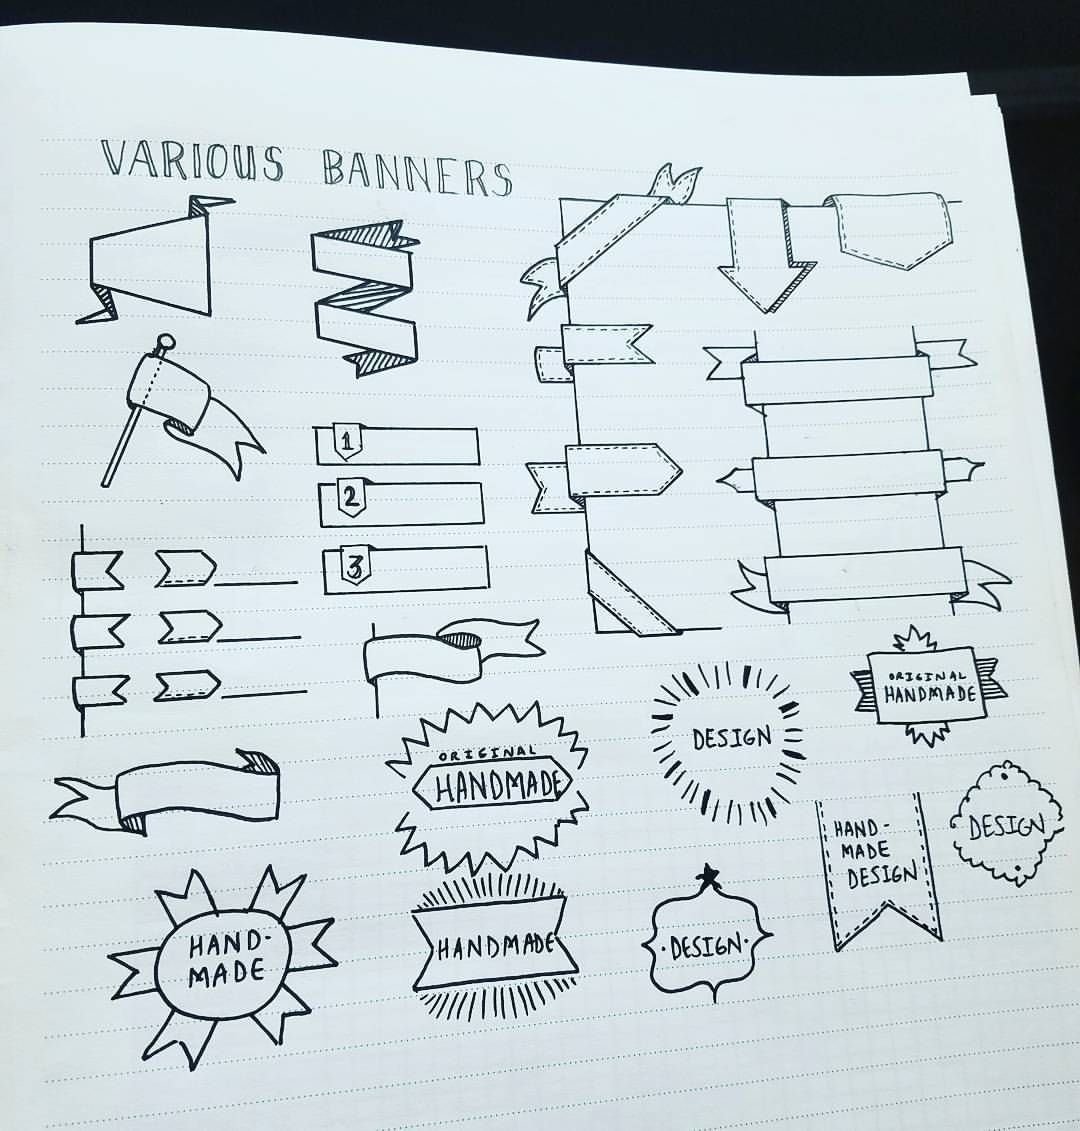 VARIOUS BANNERS
1
2
3
ORIGINAL
HANDMADE
DESIGN
ORIGINAL
HANDMADE
HAND-
MADE
DESIGN
DESIGN
HAND-
MADE
HANDMADE
·DESIGN·